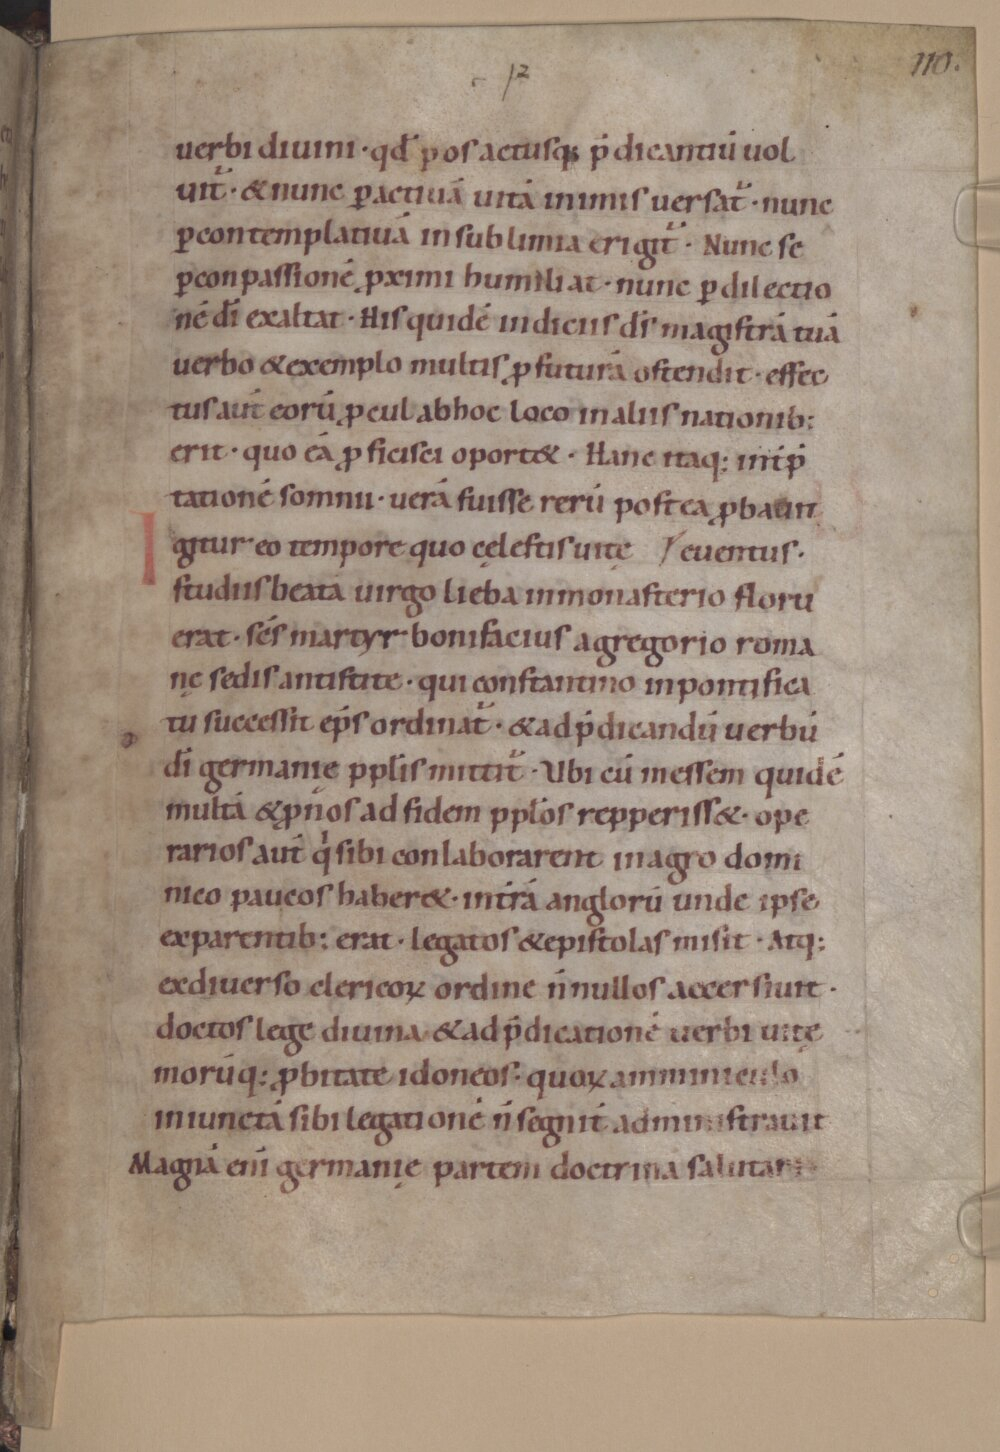 12
110.
uerbi diuini · qđ p os actusq; p̄dicantiū uol
uit᷑ · & nunc ꝑ actiuā uitā in imis uersat᷑ · nunc
ꝑ contemplatiuā in sublimia erigit᷑ · Nunc se
ꝑ conpassionē ꝓximi humiliat · nunc ꝑ dilectio
nē dī exaltat · His quidē indiciis dī magistrā tuā
uerbo & exemplo multis ꝓfuturā ostendit · effec
tus aut̄ eorū ꝓcul ab hoc loco in aliis nationib:
erit · quo eā ꝓficisci oport& · Hanc itaq: int̄p̄
tationē somnii · uerā fuisse rerū postea ꝓbauit
Igitur eo tempore quo cęlestis uitę / euentus ·
studiis beata uirgo lieba in monasterio floru
erat · sc̄s martyr bonifacius a gregorio roma
nę sedis antistite · qui constantino in pontifica
tu successit ep̄s ordinat᷑ · & ad p̄dicandū uerbū
dī germanię pplīs mittit᷑ · Ubi cū messem quidē
multā & ꝓnos ad fidem pplōs repperiss& · ope
rarios aut̄ qͥ sibi conlaborarent in agro domi
nico paucos haber& · in t̄rā anglorū unde ipse
ex parentib: erat · legatos & epistolas misit · Atq:
ex diuerso clericoꝝ ordine n̄nullos accersiuit ·
doctos lege diuina & ad p̄dicationē uerbi uitę
morūq: ꝓbitate idoneos · quoꝝ amminiculo
iniunctā sibi legationē n̄ segnit̄ administrauit
Magnā enī germanię partem doctrina salutari